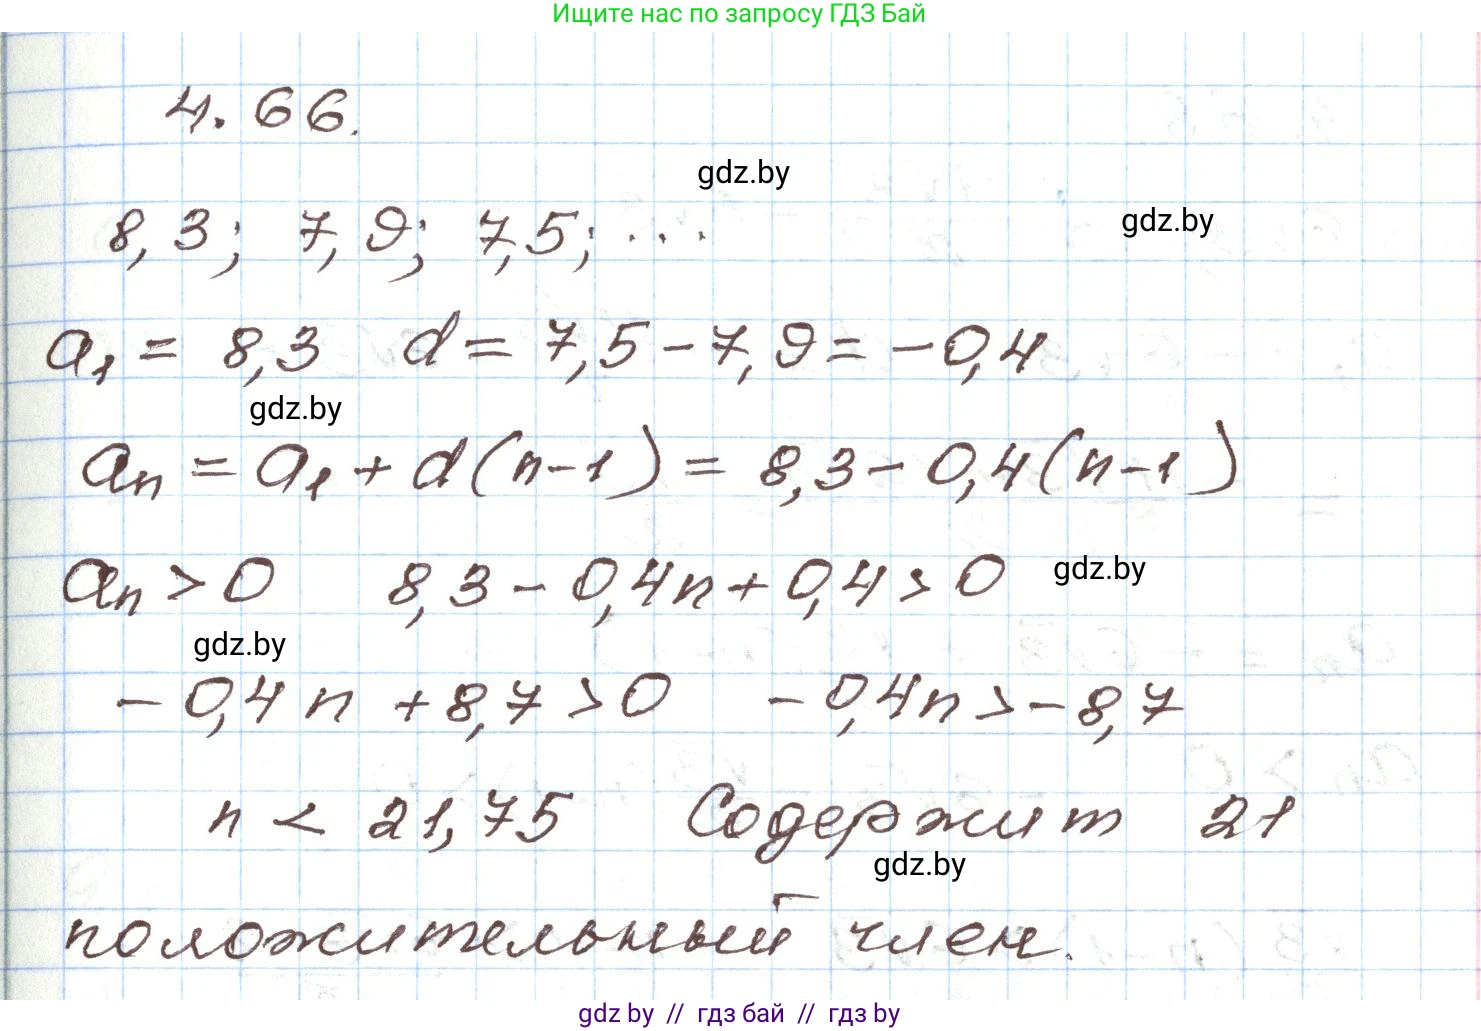 Ищите нас по запросу ГДЗ Бай
4.66.
gdz.by
8,3; 7,9; 7,5; ...
gdz.by
a₁ = 8,3 d = 7,5 - 7,9 = -0,4
gdz.by
aₙ = a₁ + d(n-1) = 8,3 - 0,4(n-1)
aₙ > 0 8,3 - 0,4n + 0,4 > 0
gdz.by
gdz.by
- 0,4n + 8,7 > 0 - 0,4n > - 8,7
n < 21,75 Содержит 21
gdz.by
положительный член.
gdz by // гдз бай // гдз by